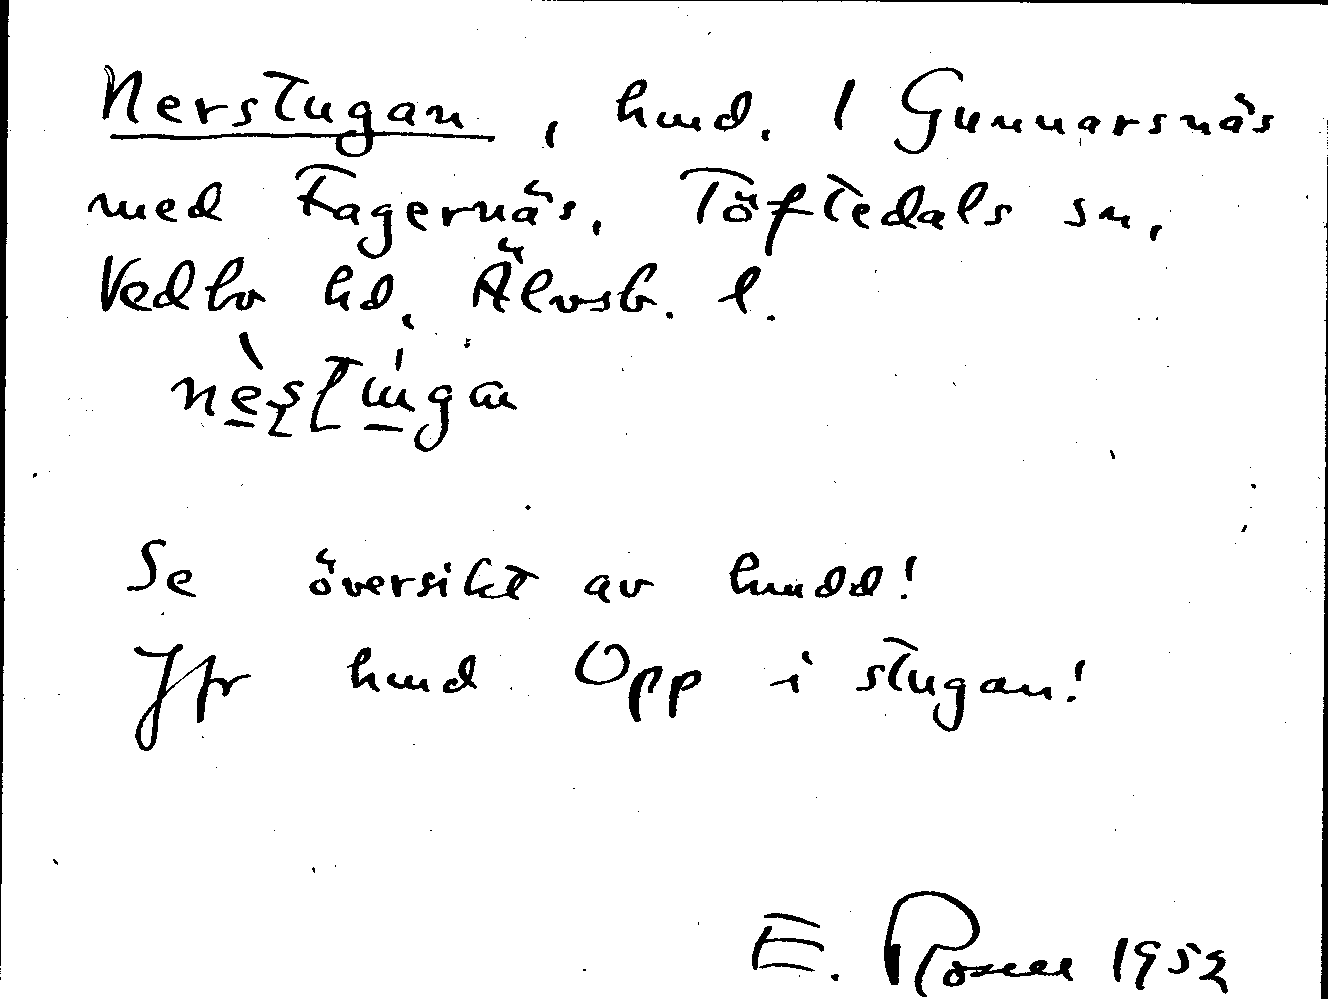 Nerstugan, hmd. 1 Gunnarsnäs
med Fagernäs, Töftedals sn,
Vedbo hd, Älvsb. l.
Se översikt av hmdd!
Jfr hmd Opp i stugan!
E. Rosell 1952